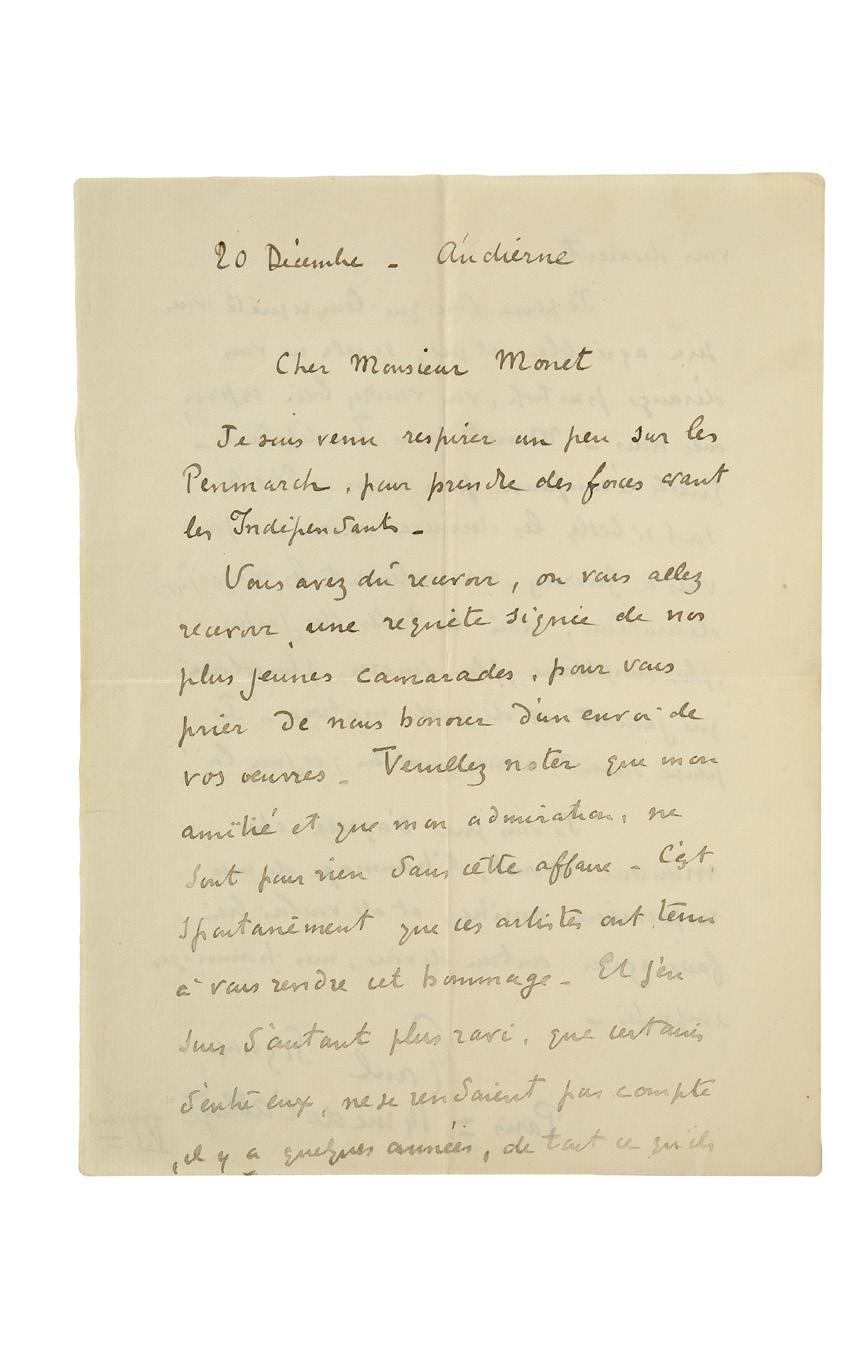 20 Décembre - Audierne
Cher Monsieur Monet
Je suis venu respirer un peu sur les
Penmarch, pour prendre des forces avant
les Indépendants -
Vous avez dû recevoir, ou vous allez
recevoir, une requête signée de nos
plus jeunes camarades, pour vous
prier de nous honorer d'un envoi de
vos oeuvres - Veuillez noter que mon
amitié et que mon admiration, ne
sont pour rien dans cette affaire - C'est
spontanément que ces artistes ont tenu
à vous rendre cet hommage - Et j'en
suis d'autant plus ravi, que certains
d'entre eux, ne se rendaient pas compte
, il y a quelques années, de tout ce qu'ils